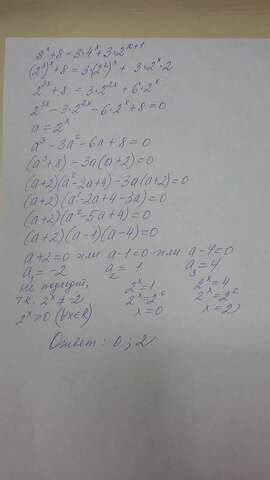 8^x+8=3·4^x+3·2^(x+1)
(2^3)^x+8=3·(2^2)^x+3·2^x·2
2^(3x)+8=3·2^(2x)+6·2^x
2^(3x)-3·2^(2x)-6·2^x+8=0
a=2^x
a^3-3a^2-6a+8=0
(a^3+8)-3a(a+2)=0
(a+2)(a^2-2a+4)-3a(a+2)=0
(a+2)(a^2-2a+4-3a)=0
(a+2)(a^2-5a+4)=0
(a+2)(a-1)(a-4)=0
a+2=0 или a-1=0 или a-4=0
a₁=-2 a₂=1 a₃=4
не подходит, 2^x=1 2^x=4
т.к. 2^x≠-2 2^x=2^0 2^x=2^2
2^x>0 (∀x∈R) x=0 x=2
Ответ: 0; 2